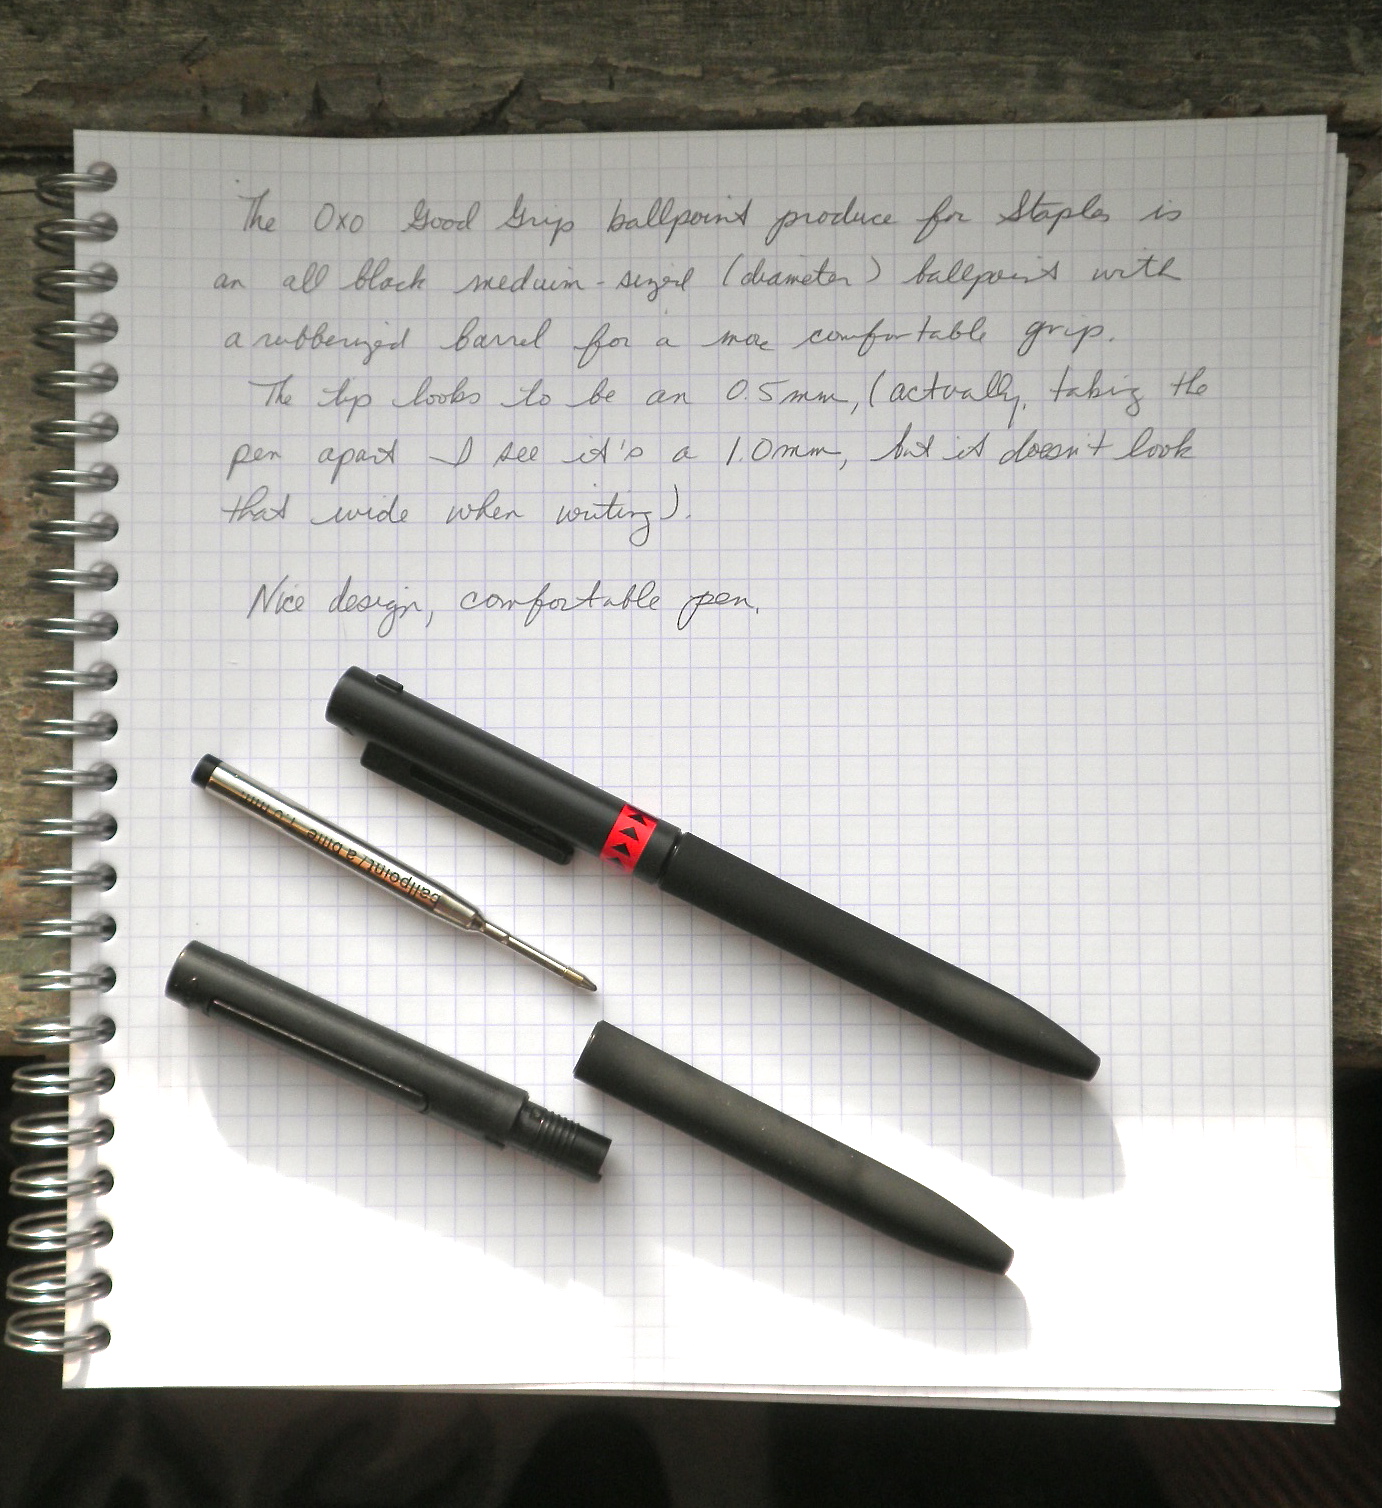 The Oxo Good Grip ballpoint produce for Staples is
an all black medium-sized (diameter) ballpoint with
a rubberized barrel for a more comfortable grip.
The tip looks to be an 0.5mm, (actually, taking the
pen apart I see it's a 1.0mm, but it doesn't look
that wide when writing).
Nice design, comfortable pen.
ballpoint / à bille 1.0 mm